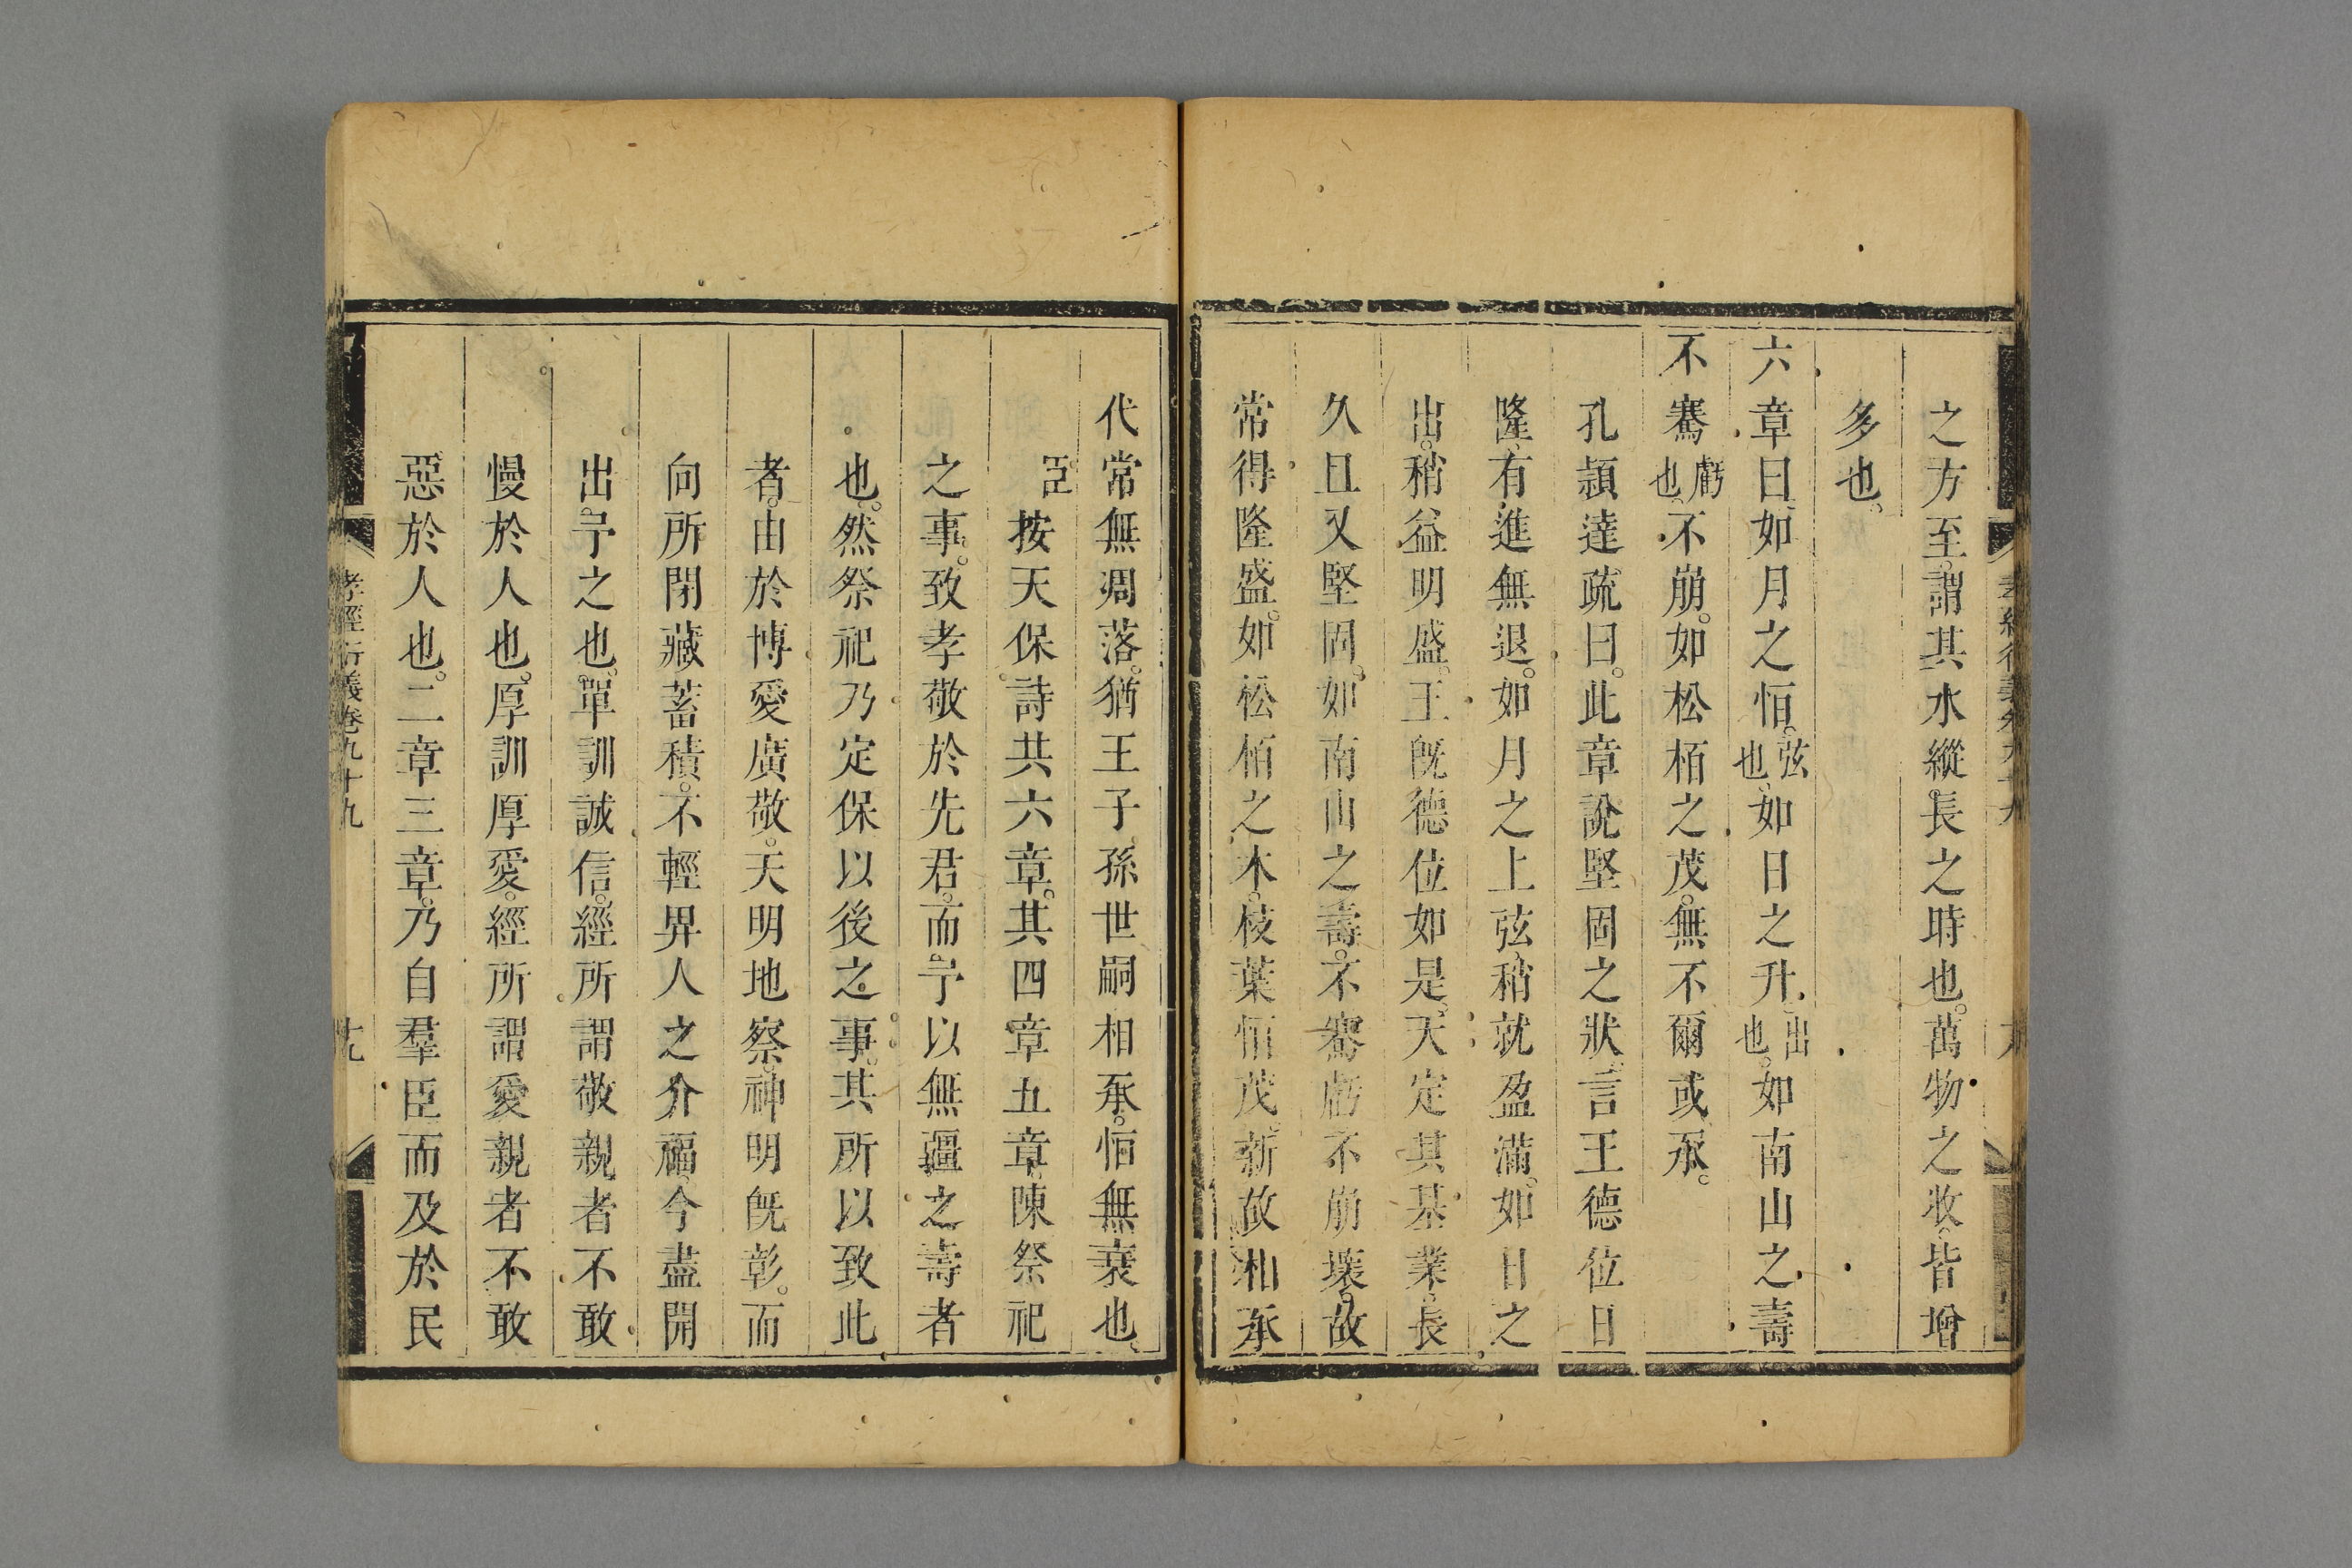 之方至。謂其水縱長之時也。萬物之收。皆增
多也。
六章曰。如月之恒。弦也。如日之升。出也。如南山之壽
不騫虧也。不崩。如松栢之茂。無不爾或承。
孔穎達疏曰。此章說堅固之狀。言王德位日
隆。有進無退。如月之上弦。稍就盈滿。如日之
出。稍益明盛。王旣德位如是。天定其基業。長
久且又堅固。如南山之壽。不騫虧不崩壞。故
常得隆盛。如松栢之木。枝葉恒茂。新故相承
代常無凋落。猶王子孫世嗣相承。恒無衰也。
臣按天保詩共六章。其四章五章。陳祭祀
之事。致孝敬於先君。而予以無疆之壽者
也。然祭祀乃定保以後之事。其所以致此
者。由於博愛廣敬。天明地察。神明旣彰。而
向所閉藏蓄積。不輕畀人之介福。今盡開
出予之也。單訓誠信。經所謂敬親者不敢
慢於人也。厚訓厚愛。經所謂愛親者不敢
惡於人也。二章三章。乃自羣臣而及於民
孝經衍義卷九十九
十九